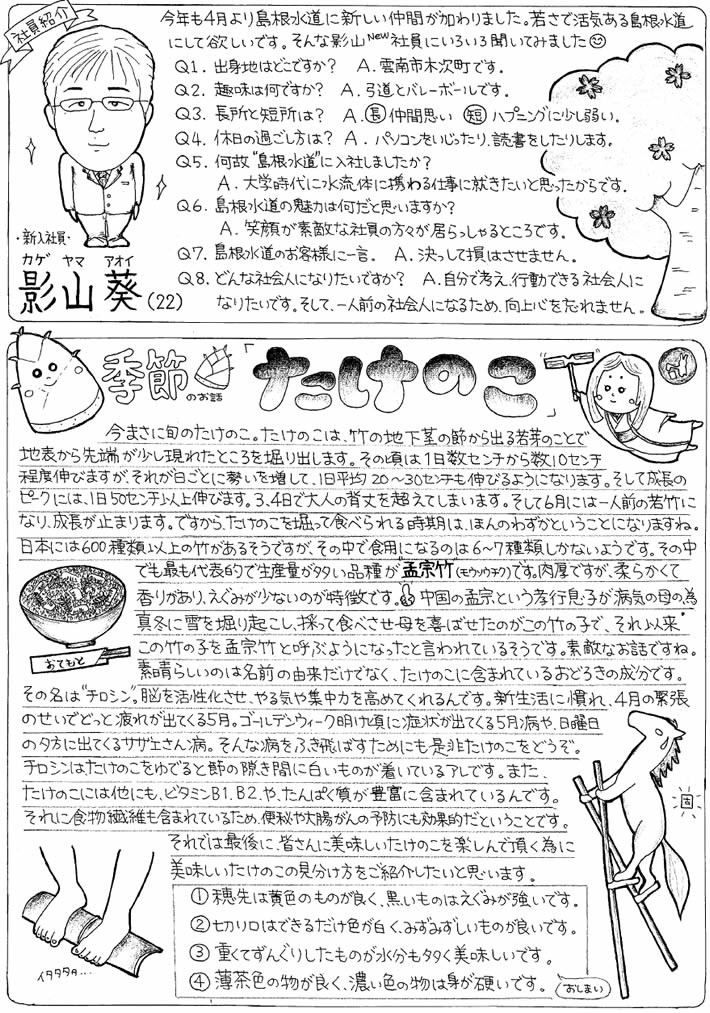 社員紹介
今年も4月より島根水道に新しい仲間が加わりました。若さで活気ある島根水道
にして欲しいです。そんな影山New社員にいろいろ聞いてみました
Q1. 出身地はどこですか? A. 雲南市木次町です。
Q2. 趣味は何ですか? A. 弓道とバレーボールです。
Q3. 長所と短所は? A. 長 仲間思い 短 ハプニングに少し弱い。
Q4. 休日の過ごし方は? A. パソコンをいじったり、読書をしたりします。
Q5. 何故"島根水道"に入社しましたか?
A. 大学時代に水流体に携わる仕事に就きたいと思ったからです。
Q6. 島根水道の魅力は何だと思いますか?
A. 笑顔が素敵な社員の方々が居らっしゃるところです。
Q7. 島根水道のお客様に一言。 A. 決って損はさせません。
Q8. どんな社会人になりたいですか? A. 自分で考え、行動できる社会人に
なりたいです。そして、一人前の社会人になるため、向上心を忘れません。
・新入社員・
カゲ ヤマ アオイ
影山 葵 (22)
季節のお話
「たけのこ」
今まさに旬のたけのこ。たけのこは、竹の地下茎の節から出る若芽のことで
地表から先端が少し現れたところを堀り出します。その頃は1日数センチから数10センチ
程度伸びますが、それが日ごとに勢いを増して、1日平均20〜30センチも伸びるようになります。そして成長の
ピークには、1日50センチ以上伸びます。3、4日で大人の背丈を超えてしまいます。そして6月には一人前の若竹に
なり、成長が止まります。ですから、たけのこを掘って食べられる時期は、ほんのわずかということになりますね。
日本には600種類以上の竹があるそうですが、その中で食用になるのは6〜7種類しかないようです。その中
でも最も代表的で生産量が多い品種が"孟宗竹(モウソウチク)です。肉厚ですが、柔らかくて
香りがあり、えぐみが少ないのが特徴です。中国の孟宗という孝行息子が病気の母の為
真冬に雪を堀り起こし、採って食べさせ母を喜ばせたのがこの竹の子で、それ以来
この竹の子を孟宗竹と呼ぶようになったと言われているそうです。素敵なお話ですね。
素晴らしいのは名前の由来だけでなく、たけのこに含まれているおどろきの成分です。
おてもと
その名は"チロシン"。脳を活性化させ、やる気や集中力を高めてくれるんです。新生活に慣れ、4月の緊張
のせいでどっと疲れが出てくる5月。ゴールデンウィーク明け頃に症状が出てくる5月病や、日曜日
の夕方に出てくるサザエさん病。そんな病をふき飛ばすためにも是非たけのこをどうぞ。
チロシンはたけのこをゆでると節の隙き間に白いものが着いているアレです。また、
たけのこには他にも、ビタミンB1、B2、や、たんぱく質が豊富に含まれているんです。
それに食物繊維も含まれているため、便秘や大腸がんの予防にも効果的だということです。
それでは最後に、皆さんに美味しいたけのこを楽しんで頂く為に
美味しいたけのこの見分け方をご紹介したいと思います。
① 穂先は黄色のものが良く、黒いものはえぐみが強いです。
② 切り口はできるだけ色が白く、みずみずしいものが良いです。
③ 重くてずんぐりしたものが水分も多く美味しいです。
④ 薄茶色の物が良く、濃い色の物は身が硬いです。
おしまい
イタタタタ...